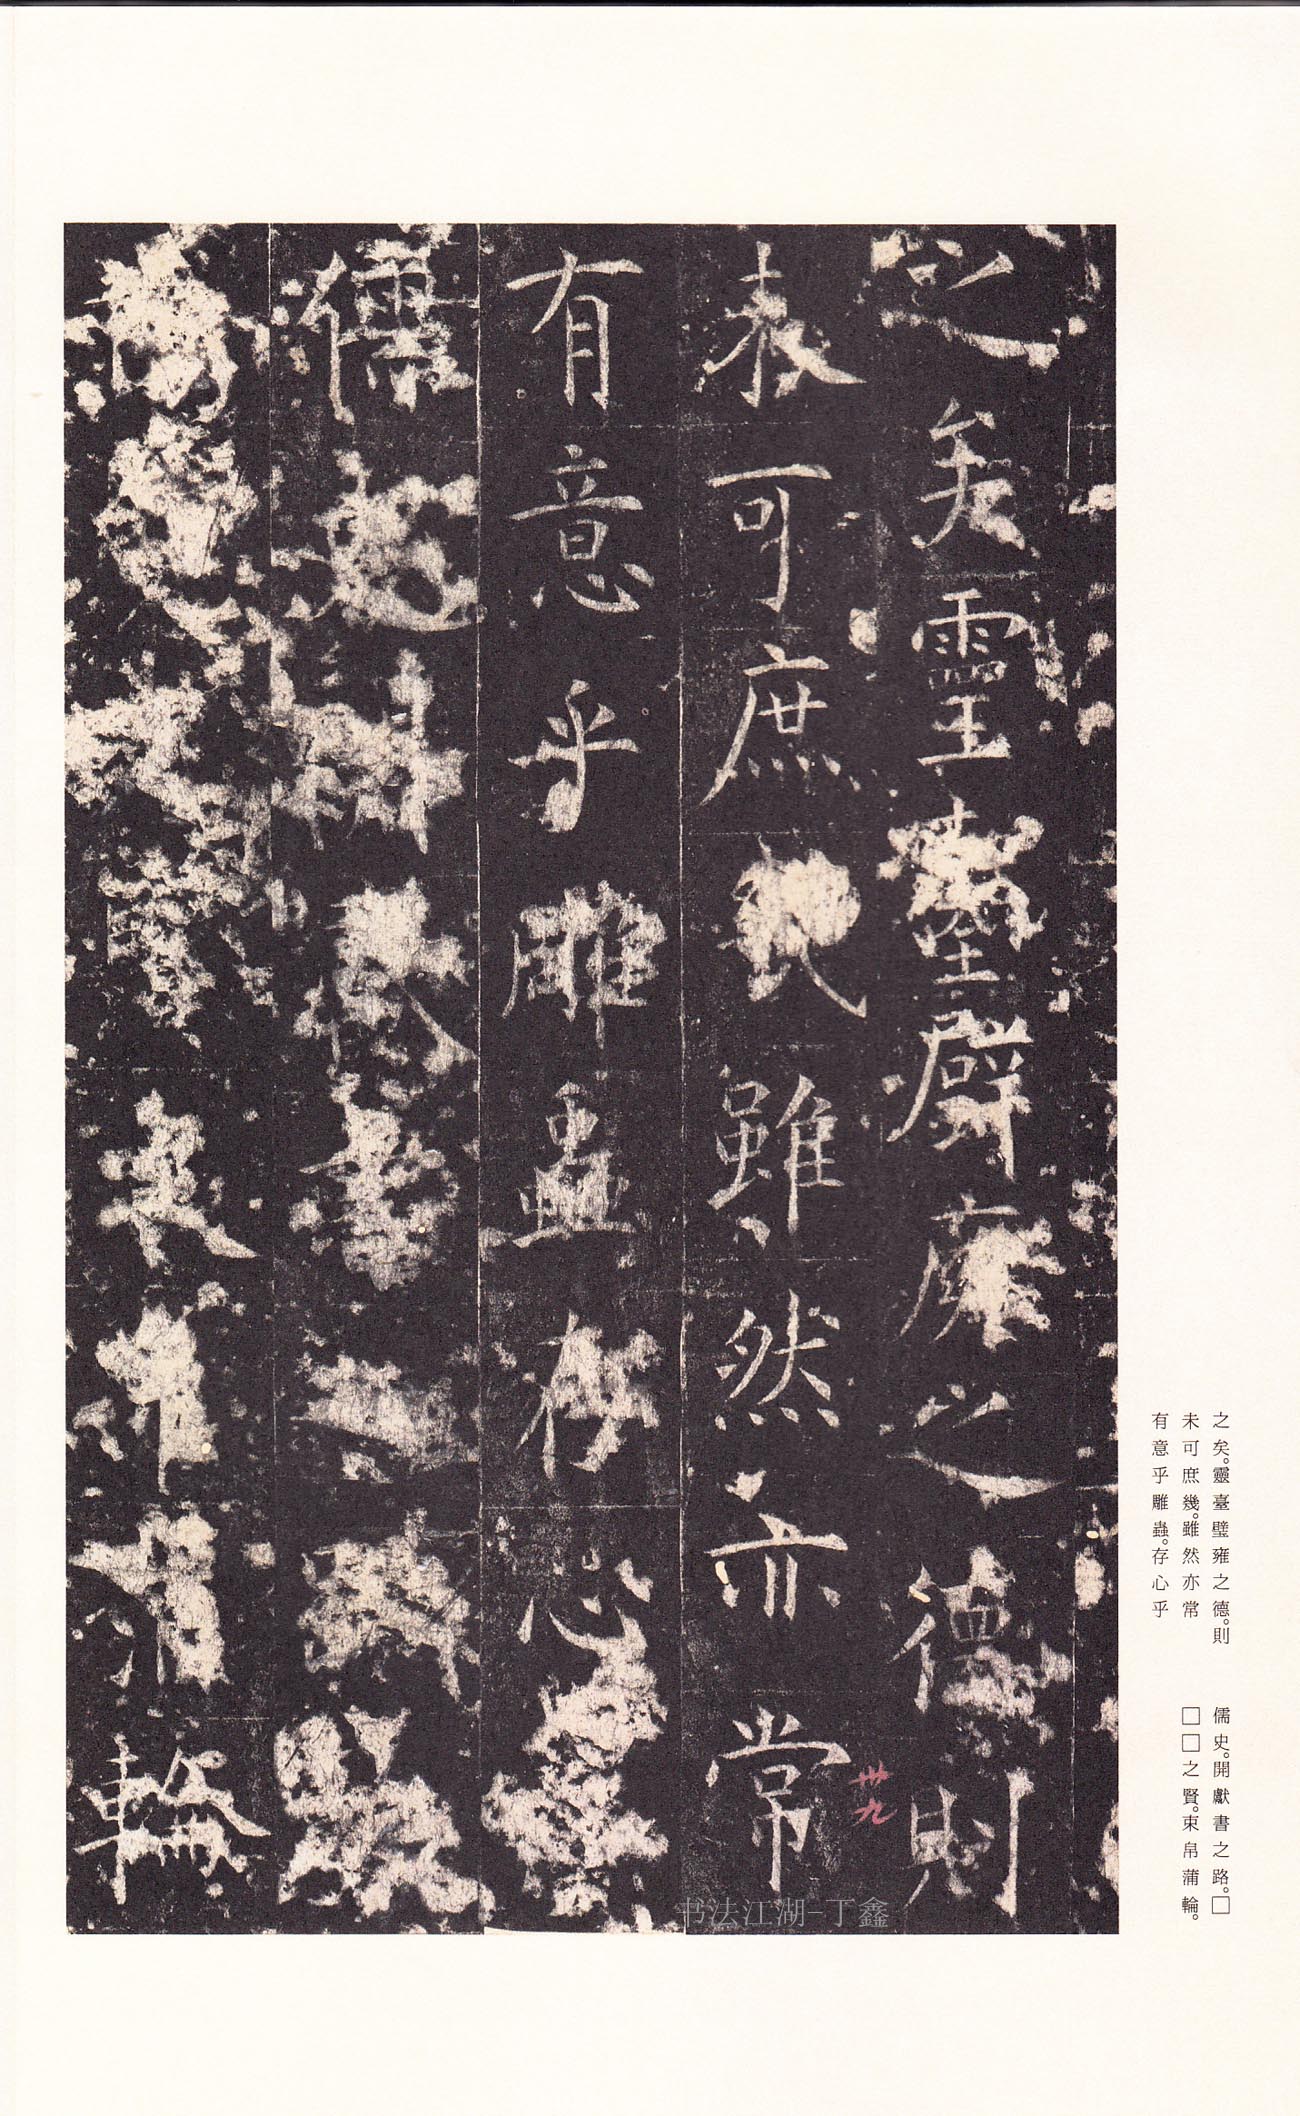 之矣靈臺璧雍之德則
未可庶幾雖然亦常
有意乎雕蟲存心乎
儒史開獻書之路
之賢束帛蒲輪
卅九
之矣。靈臺璧雍之德。則
未可庶幾。雖然亦常
有意乎雕蟲。存心乎
儒史。開獻書之路。□
□□之賢。束帛蒲輪。
书法江湖-丁鑫